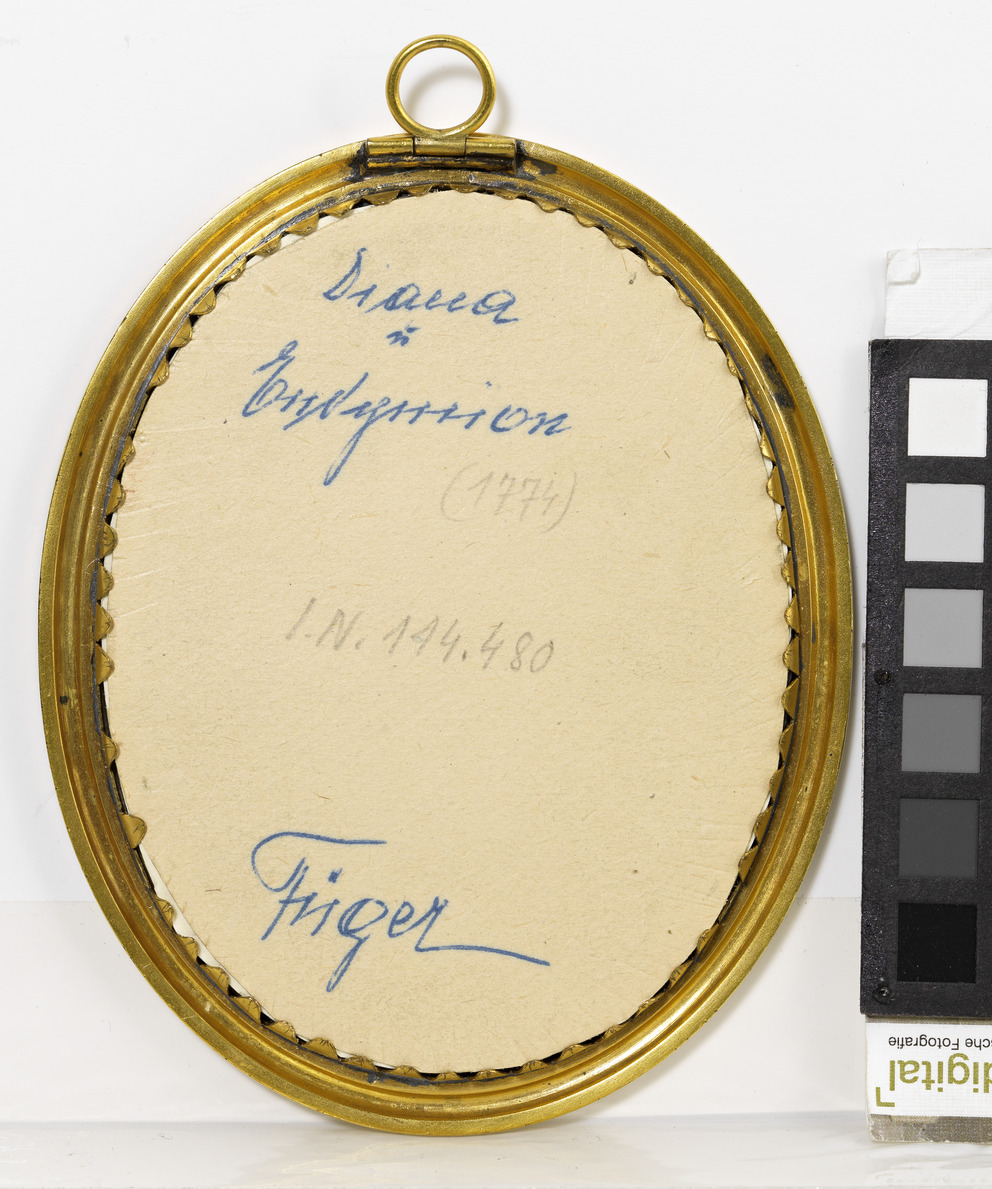 Diana
u
Endymion
(1774)
I.N. 114.480
Füger
digital
sche Fotografie